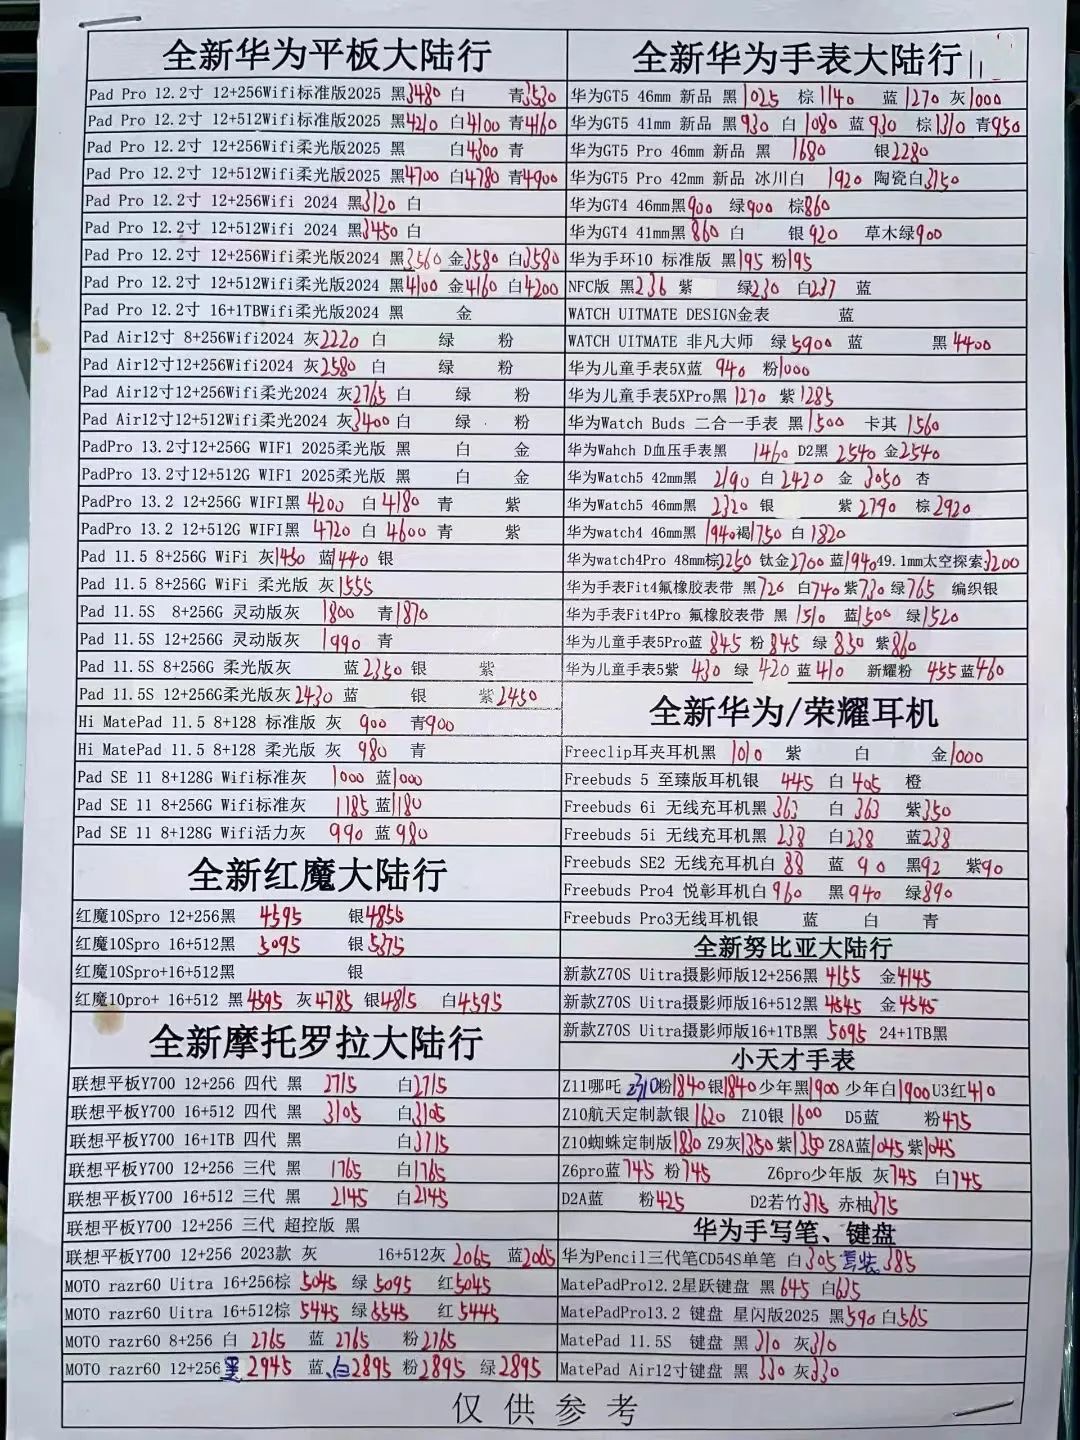 全新华为平板大陆行
Pad Pro 12.2寸 12+256Wifi标准版2025 黑3480 白 青3530
Pad Pro 12.2寸 12+512Wifi标准版2025 黑4210 白4100 青4160
Pad Pro 12.2寸 12+256Wifi柔光版2025 黑 白4300 青
Pad Pro 12.2寸 12+512Wifi柔光版2025 黑4700 白4780 青4900
Pad Pro 12.2寸 12+256Wifi 2024 黑3120 白
Pad Pro 12.2寸 12+512Wifi 2024 黑3450 白
Pad Pro 12.2寸 12+256Wifi柔光版2024 黑3560 金3580 白3580
Pad Pro 12.2寸 12+512Wifi柔光版2024 黑4100 金4160 白4200
Pad Pro 12.2寸 16+1TBWifi柔光版2024 黑 金
Pad Air12寸 8+256Wifi2024 灰2220 白 绿 粉
Pad Air12寸12+256Wifi2024 灰2580 白 绿 粉
Pad Air12寸12+256Wifi柔光2024 灰2765 白 绿 粉
Pad Air12寸12+512Wifi柔光2024 灰3400 白 绿 粉
PadPro 13.2寸12+256G WIF1 2025柔光版 黑 白 金
PadPro 13.2寸12+512G WIF1 2025柔光版 黑 白 金
PadPro 13.2 12+256G WIFI黑 4200 白4180 青 紫
PadPro 13.2 12+512G WIFI黑 4720 白 4600 青 紫
Pad 11.5 8+256G WiFi 灰1450 蓝1440 银
Pad 11.5 8+256G WiFi 柔光版 灰1555
Pad 11.5S 8+256G 灵动版灰 1800 青1870
Pad 11.5S 12+256G 灵动版灰 1990 青
Pad 11.5S 8+256G 柔光版灰 蓝2350 银 紫
Pad 11.5S 12+256G柔光版灰2430 蓝 银 紫2450
Hi MatePad 11.5 8+128 标准版 灰 900 青900
Hi MatePad 11.5 8+128 柔光版 灰 980 青
Pad SE 11 8+128G Wifi标准灰 1000 蓝1000
Pad SE 11 8+256G Wifi标准灰 1185 蓝1180
Pad SE 11 8+128G Wifi活力灰 990 蓝 980
全新红魔大陆行
红魔10Spro 12+256黑 4595 银4855
红魔10Spro 16+512黑 5095 银5375
红魔10Spro+16+512黑 银
红魔10pro+ 16+512 黑4595 灰4785 银4815 白4595
全新摩托罗拉大陆行
联想平板Y700 12+256 四代 黑 2715 白2715
联想平板Y700 16+512 四代 黑 3105 白3105
联想平板Y700 16+1TB 四代 黑 白3715
联想平板Y700 12+256 三代 黑 1765 白1765
联想平板Y700 16+512 三代 黑 2145 白2145
联想平板Y700 12+256 三代 超控版 黑
联想平板Y700 12+256 2023款 灰 16+512灰 2065 蓝2065
MOTO razr60 Uitra 16+256棕 5045 绿 5095 红5045
MOTO razr60 Uitra 16+512棕 5445 绿 5545 红 5445
MOTO razr60 8+256 白 2765 蓝 2765 粉2765
MOTO razr60 12+256黑 2945 蓝、白2895 粉2895 绿2895
全新华为手表大陆行
华为GT5 46mm 新品 黑 1025 棕1140 蓝 1270 灰1000
华为GT5 41mm 新品 黑930 白 1080 蓝 930 棕1310 青950
华为GT5 Pro 46mm 新品 黑 1680 银2280
华为GT5 Pro 42mm 新品 冰川白 1920 陶瓷白3150
华为GT4 46mm黑900 绿900 棕860
华为GT4 41mm黑 860 白 银 920 草木绿900
华为手环10 标准版 黑195 粉195
NFC版 黑236 紫 绿230 白237 蓝
WATCH UITMATE DESIGN金表 蓝
WATCH UITMATE 非凡大师 绿5900 蓝 黑4400
华为儿童手表5X蓝 940 粉1000
华为儿童手表5XPro黑 1270 紫1285
华为Watch Buds 二合一手表 黑1500 卡其 1560
华为Wahch D血压手表黑 1460 D2黑 2540 金2540
华为Watch5 42mm黑 2190 白 2420 金 3050 杏
华为Watch5 46mm黑 2320 银 紫 2790 棕2920
华为watch4 46mm黑1940褐1750 白 1820
华为watch4Pro 48mm棕2250 钛金2700 蓝1940 49.1mm太空探索3200
华为手表Fit4氟橡胶表带 黑720 白740 紫730 绿765 编织银
华为手表Fit4Pro 氟橡胶表带 黑 1510 蓝1500 绿1520
华为儿童手表5Pro蓝 845 粉 845 绿 830 紫860
华为儿童手表5紫 430 绿 420 蓝410 新耀粉 455 蓝460
全新华为/荣耀耳机
Freeclip耳夹耳机黑 1010 紫 白 金1000
Freebuds 5 至臻版耳机银 445 白 405 橙
Freebuds 6i 无线充耳机黑363 白 363 紫350
Freebuds 5i 无线充耳机黑 238 白238 蓝238
Freebuds SE2 无线充耳机白 88 蓝 90 黑92 紫90
Freebuds Pro4 悦彰耳机白960 黑940 绿890
Freebuds Pro3无线耳机银 蓝 白 青
全新努比亚大陆行
新款Z70S Uitra摄影师版12+256黑 4155 金4145
新款Z70S Uitra摄影师版16+512黑 4645 金4545
新款Z70S Uitra摄影师版16+1TB黑 5095 24+1TB黑
小天才手表
Z11哪吒 2310粉1840银1840少年黑1900 少年白1900U3红410
Z10航天定制款银 1620 Z10银1600 D5蓝 粉475
Z10蜘蛛定制版1830 Z9灰1350紫1350 Z8A蓝1045紫1045
Z6pro蓝745 粉745 Z6pro少年版 灰745 白745
D2A蓝 粉425 D2若竹375 赤柚375
华为手写笔、键盘
华为Pencil三代笔CD54S单笔 白305 套装385
MatePadPro12.2星跃键盘 黑 645 白635
MatePadPro13.2 键盘 星闪版2025 黑590白565
MatePad 11.5S 键盘 黑310 灰310
MatePad Air12寸键盘 黑 330 灰330
仅供参考